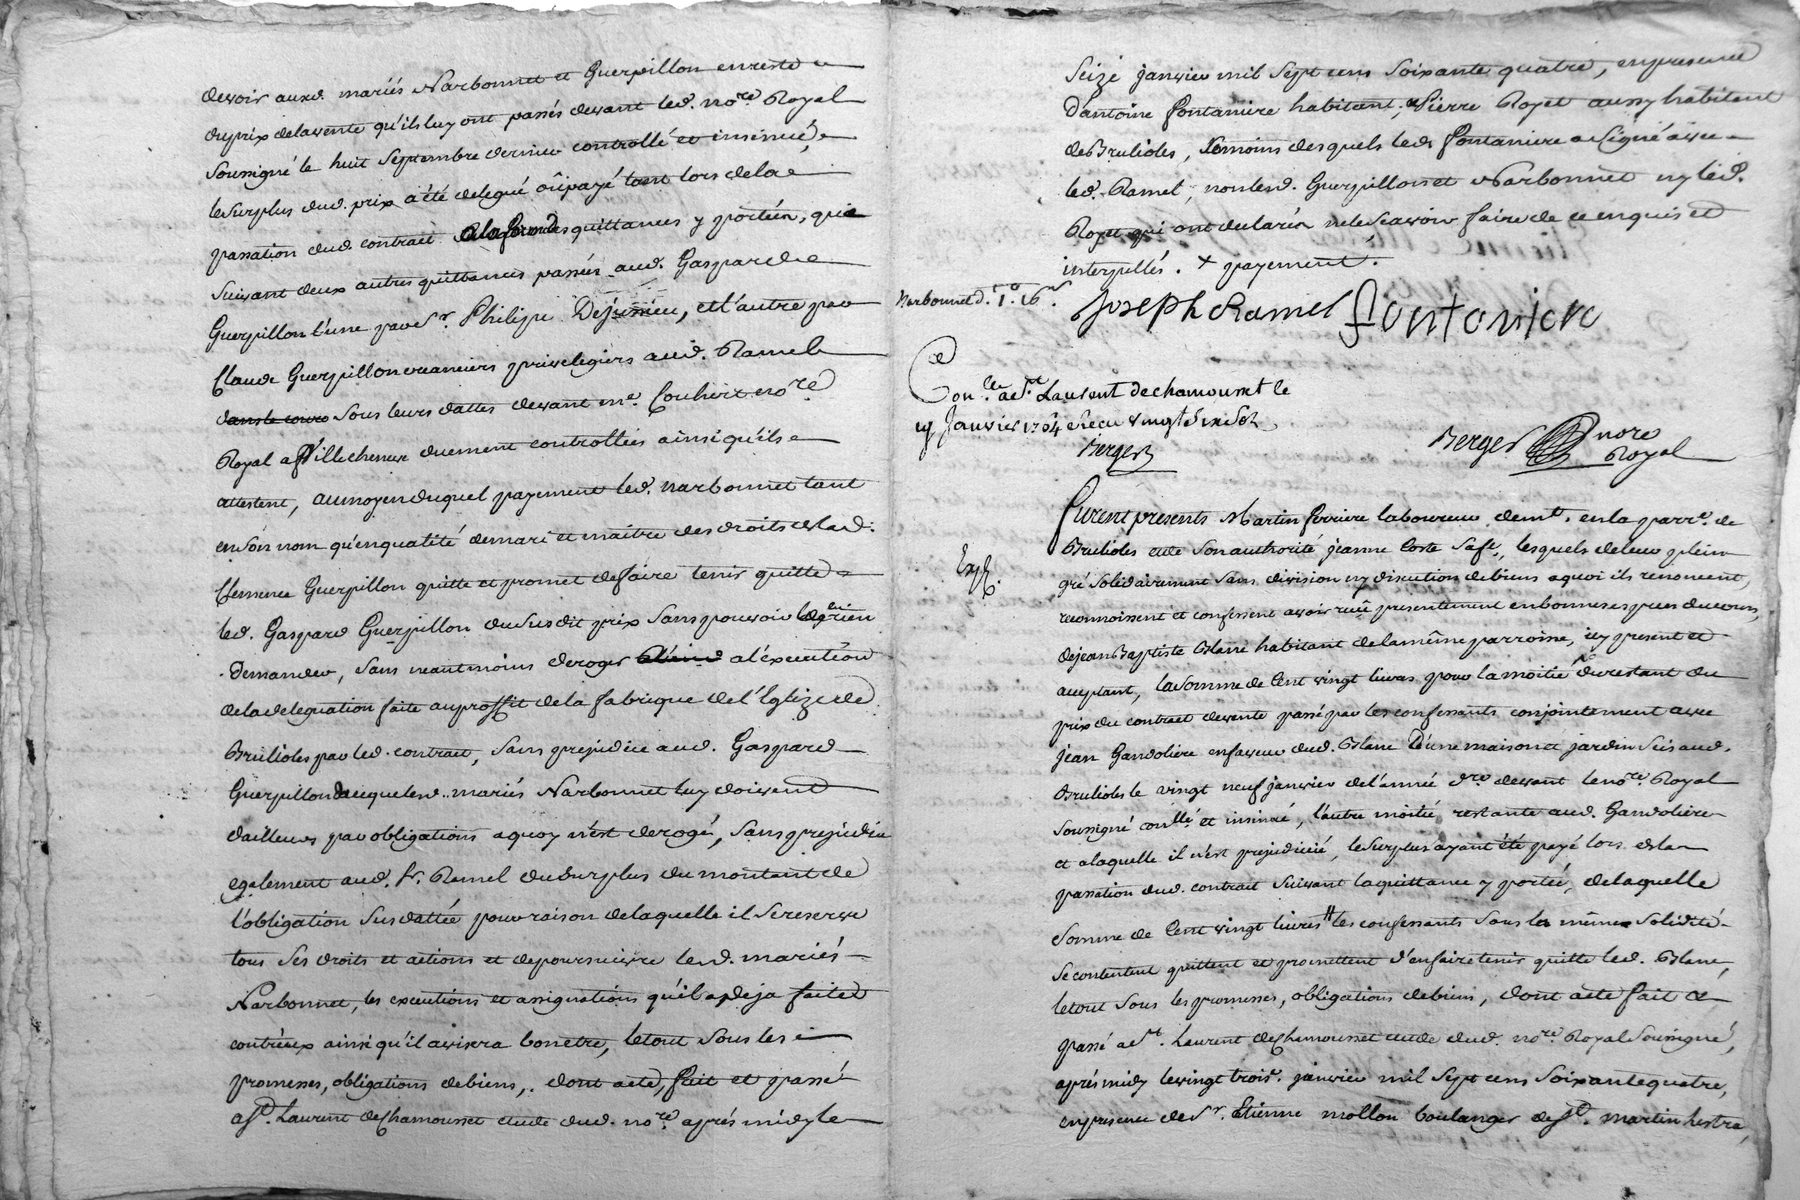 devoir auxd. mariés Narbonnet et Guerpillon en reste
du prix de la vente qu'ils luy ont passés devant led. no.re Royal
soussigné le huit septembre dernier controllé et insinué,
le surplus dud. prix a été delegué ou payé lors de la
passation dud. contrait a la forme des quittances y portées, que
suivant deux autres quittances passées aud. Gaspard
Guerpillon l'une par s.r Philipe Dejussieu, et l'autre par
Claude Guerpillon creanciers privelegiers aud. Ramel
dans le cours sous leurs dattes devant m.e Couhert no.re
Royal a Villecheneve duement controllées ainsi qu'ils
attestent, au moyen duquel payement led. Narbonnet tant
en son nom qu'en qualité de mari et maitre des droits de lad.
Clemence Guerpillon quitte et promet de faire tenir quitte
led. Gaspard Guerpillon du susdit prix sans pouvoir luy rien
demander, sans neantmoins deroger a l'exécution
de la delegation faite au proffit de la fabrique de l'Eglize de
Brulioles par led. contrait, sans prejudice aud. Gaspard
Guerpillon de ce que lesd. mariés Narbonnet luy doivent
d'ailleurs par obligations a quoy n'est derogé, sans prejudice
egalement aud. s.r Ramel du surplus du montant de
l'obligation susdattée pour raison de laquelle il se reserve
tous ses droits et actions et de poursuivre lesd. mariés
Narbonnet, les executions et assignations qu'il a deja faites
contr'eux ainsi qu'il avisera bon etre, le tout sous les
promesses, obligations de biens, dont acte, fait et passé
a S.t Laurent de Chamousset etude dud. no.re après midy le
seize janvier mil sept cens soixante quatre, en presence
d'antoine fontaniere habitant, & Pierre Royet aussy habitant
de Brulioles, témoins desquels led. fontaniere a signé avec
led. Ramel, non lesd. Guerpillon et Narbonnet ny led.
Royet qui ont declarés ne le scavoir faire de ce enquis et
interpellés. + payement.
Narbonnet d. 1.o 16.s
Joseph Ramel Fontoniere
Con.llé a S.t Laurent de chamousset le
19 Janvier 1764 Receu vingt six sols
Berger
Berger nore
Royal
Furent presents Martin ferriere laboureur dem.t en la parr.e de
Expé.
Brulioles et de son authorité jeanne Coste sa fe., lesquels de leur plein
gré solidairement sans division ny discution de biens a quoi ils renoncent,
reconnoissent et confessent avoir receu presentement en bonnes especes du cours,
de jean Baptiste Blanc habitant de la même parroisse, icy present et
acceptant, la somme de Cent vingt livres pour la moitié du restant du
prix du contract de vente passé par les confessants conjointement avec
jean Gandoliere en faveur dud. Blanc d'une maison et jardin scis aud.
Brulioles le vingt neuf janvier de l'année d.re devant le no.re Royal
soussigné con.llé et insinué, l'autre moitié restante aud. Gandoliere
et a laquelle il n'est prejudicié, le surplus ayant été payé lors de la
passation dud. contrait suivant la quittance y portée, de laquelle
somme de Cent vingt livres les confessants sous la même solidité
se contentent quittent et promettent d'en faire tenir quitte led. Blanc,
le tout sous les promesses, obligations de biens, dont acte fait &
passé a S.t Laurent de Chamousset etude dud. no.re Royal soussigné,
après midy le vingt trois.e janvier mil sept cens soixante quatre,
en presence de s.r Etienne mollon boulanger de S.t martin lestra,